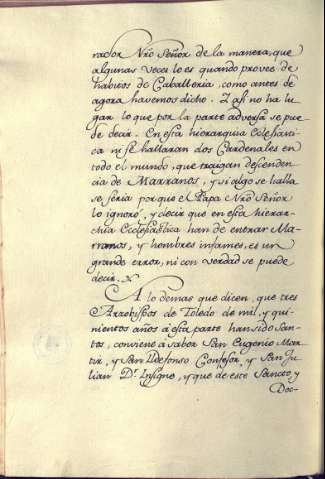 rador Nrõ Señor de la manera, que
algunas veces lo es quando provee de
habitos de Caballeria, como antes de
agora havemos dicho. Y asi no ha lu-
gar lo que por la parte adversa se pue-
de decir. En esta hierarquia Eclesiasti-
ca ni se hallaran dos Cardenales en
todo el mundo, que traigan descenden-
cia de Marranos, y si algo se halla
se seria porque el Papa Nrõ Señor
lo ignoro, y decir que en esta hierar-
chia Ecclesiastica han de entrar Ma-
rranos, y hombres infames, es un
grande error, ni con verdad se puede
decir.
A lo demas que dicen, que tres
Arzobispos de Toledo de mil, y qui-
nientos años à esta parte han sido San-
tos, conviene à saber San Eugenio Mar-
tir, y San Ildefonso Confesor, y San Ju-
lian Dr. Insigne, y que de este Sancto, y
Doc-